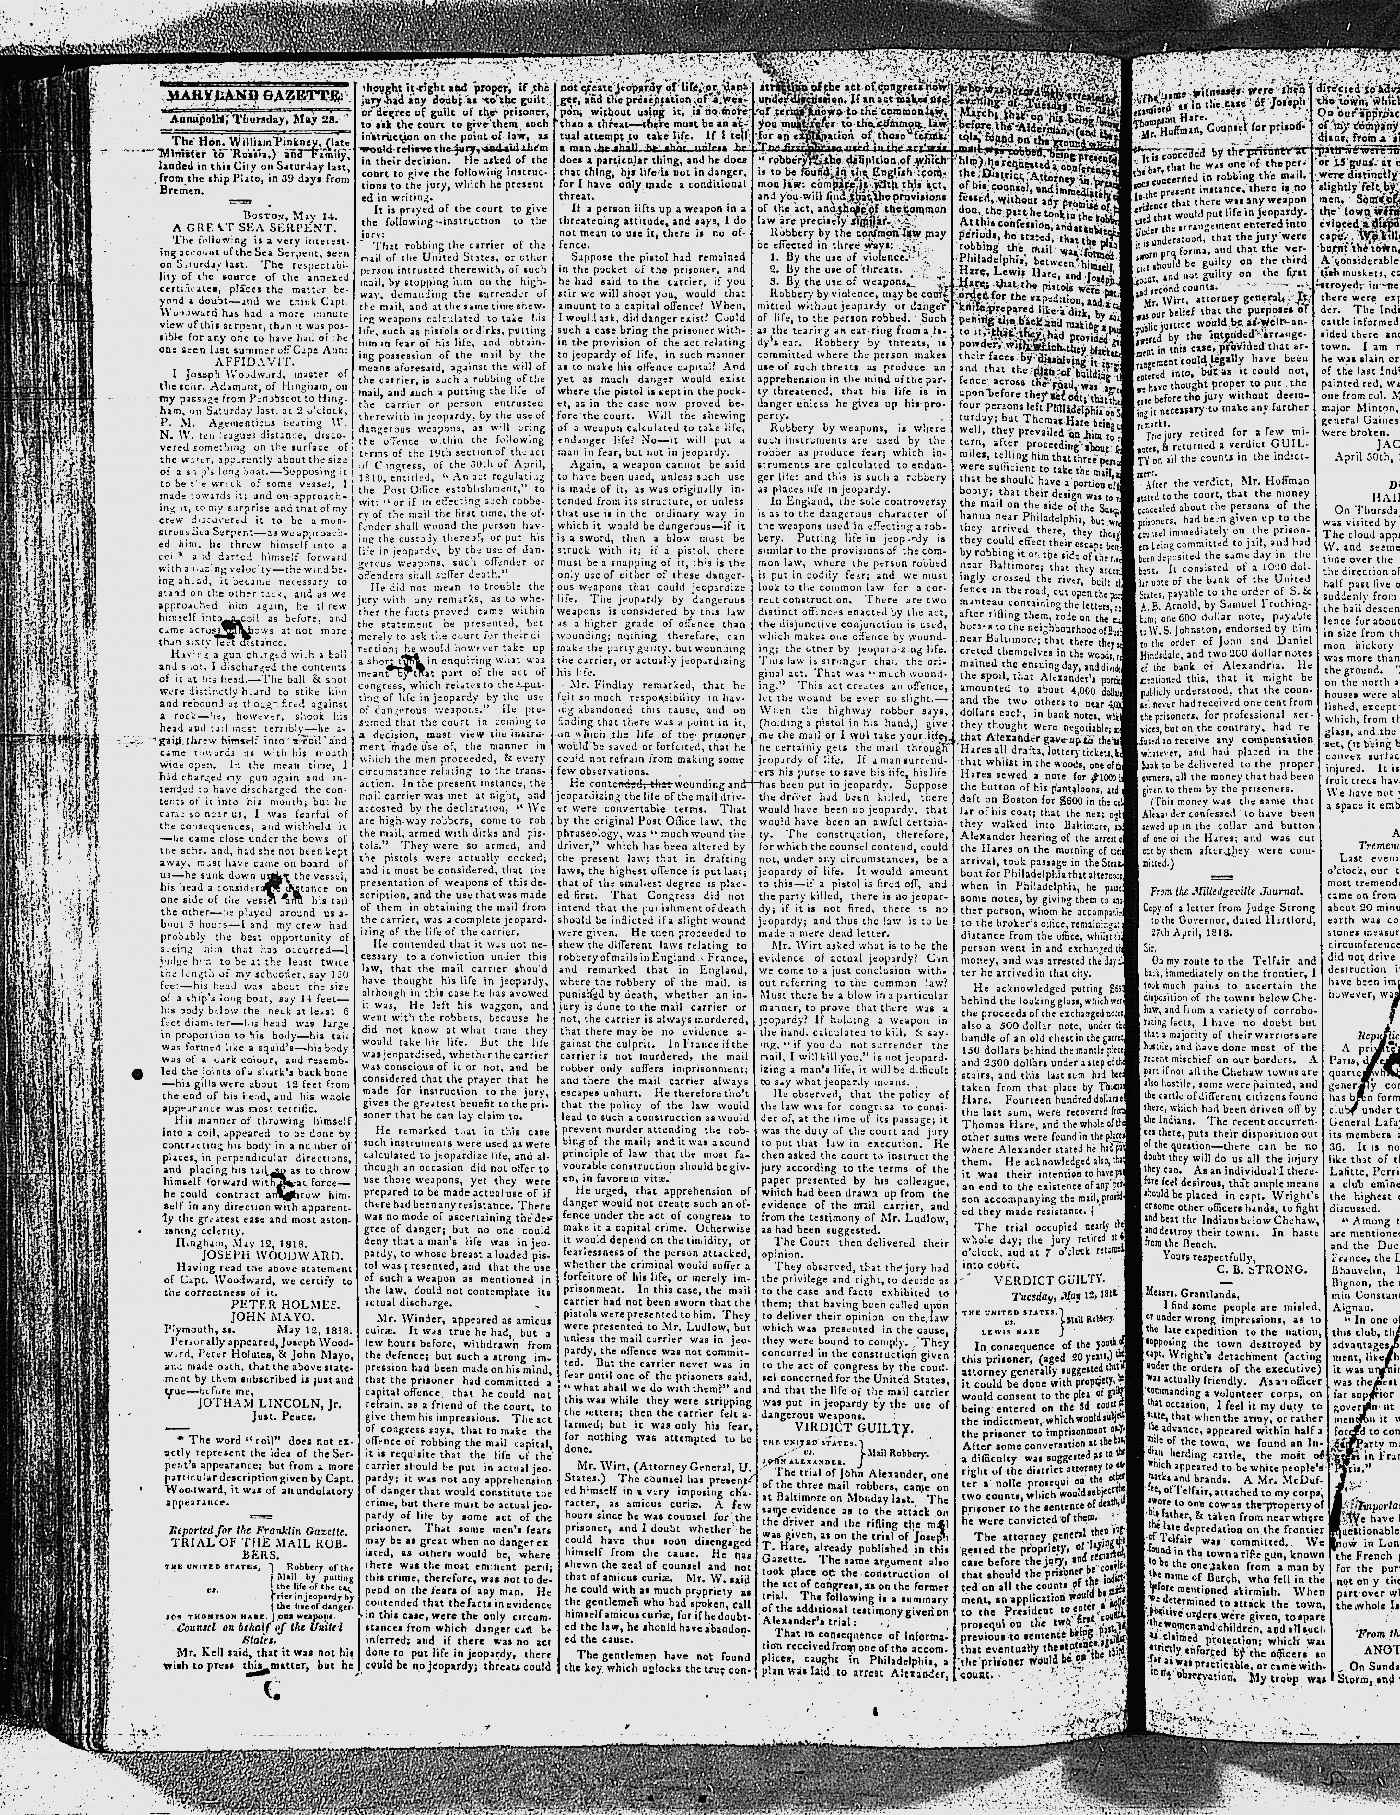 MARYLAND GAZETTE
Annapolis, Thursday, May 28.
The Hon. William Pinkney, (late
Minister to Russia,) and Family,
landed in this City on Saturday last,
from the ship Plato, in 39 days from
Bremen.
BOSTON, May 14.
A GREAT SEA SERPENT.
The following is a very interest-
ing account of the Sea Serpent, seen
on Saturday last. The respectabi-
lity of the source of the annexed
certificates, places the matter be-
yond a doubt—and we think Capt.
Woodward has had a more minute
view of this serpent, than it was pos-
sible for any one to have had of the
one seen last summer off Cape Ann:
AFFIDAVIT.
I Joseph Woodward, master of
the scar. Adamant, of Hingham, on
my passage from Penobscot to Hing-
ham, on Saturday last, at 2 o'clock,
P. M. Agementicus bearing W.
N. W. ten leagues distance, disco-
vered something on the surface of
the water, apparently about the size
of a ship's long boat—Supposing it
to be the wreck of some vessel, I
made towards it; and on approach-
ing it, to my surprise and that of my
crew discovered it to be a mon-
strous Sea Serpent—as we approach-
ed him, he threw himself into a
coil* and darted himself forward
with amazing velocity—the wind be-
ing ahead, it became necessary to
stand on the other tack, and as we
approached him again, he threw
himself into coil as before, and
came across bows at not more
than sixty feet distance.
Having a gun charged with a ball
and shot, I discharged the contents
of it at his head.—The ball & shot
were distinctly heard to stike him
and rebound as though fired against
a rock—he, however, shook his
head and tail most terribly—he a-
gain threw himself into a coil and
came towards us with his mouth
wide open. In the mean time, I
had charged my gun again and in-
tended to have discharged the con-
tents of it into his mouth; but he
came so near us, I was fearful of
the consequences, and withheld it
—he came close under the bows of
the schr. and, had she not been kept
away, must have came on board of
us—he sunk down the vessel,
his head a distance on
one side of the vessel his tail
the other—he played around us a-
bout 5 hours—I and my crew had
probably the best opportunity of
seeing him that has occurred—I
judge him to be at the least twice
the length of my schooner, say 130
feet—his head was about the size
of a ship's long boat, say 14 feet—
his body below the neck at least 6
feet diameter—his head was large
in proportion to his body—his tail
was formed like a squid's—his body
was of a dark colour, and resemb-
led the joints of a shark's back bone
—his gills were about 12 feet from
the end of his head, and his whole
appearance was most terrific.
His manner of throwing himself
into a coil, appeared to be done by
contracting his body in a number of
places, in perpendicular directions,
and placing his tail so as to throw
himself forward with great force—
he could contract and throw him-
self in any direction with apparent-
ly the greatest ease and most aston-
ishing celerity.
Hingham, May 12, 1818.
JOSEPH WOODWARD.
Having read the above statement
of Capt. Woodward, we certify to
the correctness of it.
PETER HOLMES.
JOHN MAYO.
Plymouth, ss. May 12, 1818.
Personally appeared, Joseph Wood-
ward, Peter Holmes, & John Mayo,
and made oath, that the above state-
ment by them subscribed is just and
true—before me,
JOTHAM LINCOLN, Jr.
Just. Peace.
* The word "coil" does not ex-
actly represent the idea of the Ser-
pent's appearance; but from a more
particular description given by Capt.
Woodward, it was of an undulatory
appearance.
Reported for the Franklin Gazette.
TRIAL OF THE MAIL ROB-
BERS.
THE UNITED STATES,
vs.
JOS THOMPSON HARE.
Robbery of the
Mail by putting
the life of the car-
rier in jeopardy by
the use of danger-
ous weapons.
Counsel on behalf of the United
States.
Mr. Kell said, that it was not his
wish to press this matter, but he
thought it right and proper, if the
jury had any doubt as to the guilt
or degree of guilt of the prisoner,
to ask the court to give them such
instruction on the point of law, as
would relieve the jury, and aid them
in their decision. He asked of the
court to give the following instruc-
tions to the jury, which he present
ed in writing.
It is prayed of the court to give
the following instruction to the
jury:
That robbing the carrier of the
mail of the United States, or other
person intrusted therewith, of such
mail, by stopping him on the high-
way, demanding the surrender of
the mail, and at the same time shew-
ing weapons calculated to take his
life, such as pistols or dirks, putting
him in fear of his life, and obtain-
ing possession of the mail by the
means aforesaid, against the will of
the carrier, is such a robbing of the
mail, and such a putting the life of
the carrier or person entrusted
therewith in jeopardy, by the use of
dangerous weapons, as will bring
the offence within the following
terms of the 19th section of the act
of Congress, of the 30th of April,
1810, entitled, "An act regulating
the Post Office establishment," to
wit: "or if in effecting such robbe-
ry of the mail the first time, the of-
fender shall wound the person hav-
ing the custody thereof, or put his
life in jeopardy, by the use of dan-
gerous weapons, such offender or
offenders shall suffer death."
He did not mean to trouble the
jury with any remarks, as to whe-
ther the facts proved came within
the statement he presented, but
merely to ask the court for their di-
rection; he would however take up
a short in enquiring what was
meant by that part of the act of
congress, which relates to the "put-
ting of life in jeopardy by the use
of dangerous weapons." He pre-
sumed that the court in coming to
a decision, must view the instru-
ment made use of, the manner in
which the men proceeded, & every
circumstance relating to the trans-
action. In the present instance, the
mail carrier was met at night, and
accosted by the declaration, "We
are high-way robbers, come to rob
the mail, armed with dirks and pis-
tols." They were so armed, and
the pistols were actually cocked,
and it must be considered, that the
presentation of weapons of this de-
scription, and the use that was made
of them in obtaining the mail from
the carrier, was a complete jeopard-
izing of the life of the carrier.
He contended that it was not ne-
cessary to a conviction under this
law, that the mail carrier should
have thought his life in jeopardy,
although in this case he has avowed
it was. He left his waggon, and
went with the robbers, because he
did not know at what time they
would take his life. But the life
was jeopardised, whether the carrier
was conscious of it or not, and he
considered that the prayer that he
made for instruction to the jury,
gives the greatest benefit to the pri-
soner that he can lay claim to.
He remarked that in this case
such instruments were used as were
calculated to jeopardize life, and al-
though an occasion did not offer to
use those weapons, yet they were
prepared to be made actual use of if
there had been any resistance. There
was no mode of ascertaining the de-
gree of danger; but no one could
deny that a man's life was in jeo-
pardy, to whose breast a loaded pis-
tol was presented, and that the use
of such a weapon as mentioned in
the law, could not contemplate its
actual discharge.
Mr. Winder, appeared as amicus
curiæ. It was true he had, but a
few hours before, withdrawn from
the defence; but such a strong im-
pression had been made on his mind,
that the prisoner had committed a
capital offence, that he could not
refrain, as a friend of the court, to
give them his impressions. The act
of congress says, that to make the
offence of robbing the mail capital,
it is requisite that the life of the
carrier should be put in actual jeo-
pardy; it was not any apprehension
of danger that would constitute the
crime, but there must be actual jeo-
pardy of life by some act of the
prisoner. That some men's fears
may be as great when no danger ex
isted, as others would be, where
there was the most eminent peril;
this crime, therefore, was not to de-
pend on the fears of any man. He
contended that the facts in evidence
in this case, were the only circum-
stances from which danger can be
inferred; and if there was no act
done to put life in jeopardy, there
could be no jeopardy; threats could
not create jeopardy of life, or dan-
ger, and the presentation of a wea-
pon, without using it, is no more
than a threat—there must be an ac-
tual attempt to take life. If I tell
a man he shall be shot unless he
does a particular thing, and he does
that thing, his life is not in danger,
for I have only made a conditional
threat.
If a person lifts up a weapon in a
threatening attitude, and says, I do
not mean to use it, there is no of-
fence.
Suppose the pistol had remained
in the pocket of the prisoner, and
he had said to the carrier, if you
stir we will shoot you, would that
amount to a capital offence? When,
I would ask, did danger exist? Could
such a case bring the prisoner with-
in the provision of the act relating
to jeopardy of life, in such manner
as to make his offence capital? And
yet as much danger would exist
where the pistol is kept in the pock-
et, as in the case now proved be-
fore the court. Will the shewing
of a weapon calculated to take life,
endanger life? No—it will put a
man in fear, but not in jeopardy.
Again, a weapon cannot be said
to have been used, unless such use
is made of it, as was originally in-
tended from its structure, or unless
that use is in the ordinary way in
which it would be dangerous—if it
is a sword, then a blow must be
struck with it; if a pistol, there
must be a snapping of it, this is the
only use of either of these danger-
ous weapons that could jeopardize
life. The jeopardy by dangerous
weapons is considered by this law
as a higher grade of offence than
wounding; nothing therefore, can
make the party guilty, but wounding
the carrier, or actually jeopardizing
his life.
Mr. Findlay remarked, that he
felt so much responsibility in hav-
ing abandoned this cause, and on
finding that there was a point in it,
on which the life of the prisoner
would be saved or forfeited, that he
could not refrain from making some
few observations.
He contended, that wounding and
jeopardizing the life of the mail driv-
er were convertable terms. That
by the original Post Office law, the
phraseology, was "much wound the
driver," which has been altered by
the present law; that in drafting
laws, the highest offence is put last;
that of the smallest degree is plac-
ed first. That Congress did not
intend that the punishment of death
should be indicted if a slight wound
were given. He then proceeded to
shew the different laws relating to
robbery of mails in England & France,
and remarked that in England,
where the robbery of the mail, is
punished by death, whether an in-
jury is done to the mail carrier or
not, the carrier is always murdered,
that there may be no evidence a-
gainst the culprit. In France if the
carrier is not murdered, the mail
robber only suffers imprisonment;
and there the mail carrier always
escapes unhurt. He therefore tho't
that the policy of the law would
lead to such a construction as would
prevent murder attending the rob-
bing of the mail; and it was a sound
principle of law that the most fa-
vourable construction should be giv-
en, in favorem vitæ.
He urged, that apprehension of
danger would not create such an of-
fence under the act of congress to
make it a capital crime. Otherwise
it would depend on the timidity, or
fearlessness of the person attacked,
whether the criminal would suffer a
forfeiture of his life, or merely im-
prisonment. In this case, the mail
carrier had not been sworn that the
pistols were presented to him. They
were presented to Mr. Ludlow, but
unless the mail carrier was in jeo-
pardy, the offence was not commit-
ted. But the carrier never was in
fear until one of the prisoners said,
"what shall we do with them?" and
this was while they were stripping
the letters; then the carrier felt a-
larmed; but it was only his fear,
for nothing was attempted to be
done.
Mr. Wirt, (Attorney General, U.
States.) The counsel has present-
ed himself in a very imposing cha-
racter, as amicus curiæ. A few
hours since he was counsel for the
prisoner, and I doubt whether he
could have thus soon disengaged
himself from the cause. He has
shewn the zeal of counsel and not
that of amicus curiæ. Mr. W. said
he could with as much propriety as
the gentlemen who had spoken, call
himself amicus curiæ, for if he doubt-
ed the law, he should have abandon-
ed the cause.
The gentlemen have not found
the key which unlocks the true con-
struction of the act of congress now
under discussion. If an act makes use
of terms known to the common law,
you must refer to the common law
for an explanation of those terms.
The first phrase used in the act was
"robbery" the definition of which
is to be found in the English com-
mon law: compare it with this act,
and you will find that the provisions
of the act, and those of the common
law are precisely similar.
Robbery by the common law may
be effected in three ways:
1. By the use of violence.
2. By the use of threats.
3. By the use of weapons.
Robbery by violence, may be com-
mitted without jeopardy or danger
of life, to the person robbed. Such
as the tearing an ear-ring from a la-
dy's ear. Robbery by threats, is
committed where the person makes
use of such threats as produce an
apprehension in the mind of the par-
ty threatened, that his life is in
danger unless he gives up his pro-
perty.
Robbery by weapons, is where
such instruments are used by the
robber as produce fear; which in-
struments are calculated to endan-
ger life: and this is such a robbery
as places life in jeopardy.
In England, the sole controversy
is as to the dangerous character of
the weapons used in effecting a rob-
bery. Putting life in jeopardy is
similar to the provisions of the com-
mon law, where the person robbed
is put in bodily fear; and we must
look to the common law for a cor-
rect construction. There are two
distinct offences enacted by the act,
the disjunctive conjunction is used,
which makes one offence by wound-
ing; the other by jeopardizing life.
This law is stronger than the ori-
ginal act. That was "much wound-
ing." This act creates an offence,
let the wound be ever so slight.
When the highway robber says,
(holding a pistol in his hand,) give
me the mail or I will take your life,
he certainly gets the mail through
jeopardy of life. If a man surrend-
ers his purse to save his life, his life
has been put in jeopardy. Suppose
the driver had been killed, there
would have been no jeopardy, that
would have been an awful certain-
ty. The construction, therefore,
for which the counsel contend, could
not, under any circumstances, be a
jeopardy of life. It would amount
to this—if a pistol is fired off, and
the party killed, there is no jeopar-
dy; if it is not fired, there is no
jeopardy; and thus the law is to be
made a mere dead letter.
Mr. Wirt asked what is to be the
evidence of actual jeopardy? Can
we come to a just conclusion with-
out referring to the common law?
Must there be a blow in a particular
manner, to prove that there was a
jeopardy? If holding a weapon in
the hand, calculated to kill, & say-
ing, "if you do not surrender the
mail, I will kill you," is not jeopard-
izing a man's life, it will be difficult
to say what jeopardy means.
He observed, that the policy of
the law was for congress to consi-
der of, at the time of its passage; it
was the duty of the court and jury
to put that law in execution. He
then asked the court to instruct the
jury according to the terms of the
paper presented by his colleague,
which had been drawn up from the
evidence of the mail carrier, and
from the testimony of Mr. Ludlow,
as had been suggested.
The Court then delivered their
opinion.
They observed, that the jury had
the privilege and right, to decide as
to the case and facts exhibited to
them; that having been called upon
to deliver their opinion on the law
which was presented in the cause,
they were bound to comply. They
concurred in the construction given
to the act of congress by the coun-
sel concerned for the United States,
and that the life of the mail carrier
was put in jeopardy by the use of
dangerous weapons.
VIRDICT GUILTY.
THE UNITED STATES.
vs.
JOHN ALEXANDER.
Mail Robbery.
The trial of John Alexander, one
of the three mail robbers, came on
at Baltimore on Monday last. The
same evidence as to the attack on
the driver and the rifling the mail
was given, as on the trial of Joseph
T. Hare, already published in this
Gazette. The same argument also
took place on the construction of
the act of congress, as on the former
trial. The following is a summary
of the additional testimony given on
Alexander's trial:
That in consequence of informa-
tion received from one of the accom-
plices, caught in Philadelphia, a
plan was laid to arrest Alexander,
who was accordingly arrested on the
evening of Tuesday the
March, that on his being brought
before the Alderman, (and the
tols, found on the ground where the
mail was robbed, being presented
him) he requested a conference
the District Attorney in presence
of his counsel, and immediately con-
fessed, without any promise of par-
don, the part he took in the robbery.
At this confession, and at subsequent
periods, he stated, that the plan
robbing the mail was formed
Philadelphia, between himself,
Hare, Lewis Hare, and Joseph
Hare; that the pistols were pur-
well, they prevailed on him to re-
turn, after proceeding about four
miles, telling him that three persons
were sufficient to take the mail, and
that he should have a portion of the
booty; that their design was to rob
the mail on the side of the Susque-
hanna near Philadelphia, but when
they arrived there, they thought
they could effect their escape better
by robbing it on the side of the river
near Baltimore; that they accord-
ingly crossed the river, built the
fence in the road, cut open the port-
manteau containing the letters,
after rifling them, rode on the
horses to the neighbourhood of
near Baltimore; that there they se-
creted themselves in the woods, re-
mained the ensuing day, and divided
the spoil, that Alexander's portion
amounted to about 4,000 dollars
and the two others to near
dollars each, in bank notes, which
they thought were negotiable;
that Alexander gave up to the
Hares all drafts, lottery tickets, &c.
that whilst in the woods, one of the
Hares sewed a note for $1000 in
the button of his pantaloons, and a
daft on Boston for $600 in the col-
lar of his coat; that the next night
they walked into Baltimore, and
Alexander hearing of the arrest of
the Hares on the morning of their
arrival, took passage in the Steam-
boat for Philadelphia that afternoon,
when in Philadelphia, he passed
some notes, by giving them to ano-
ther person, whom he accompanied
to the broker's office, remaining at a
distance from the office, whilst the
person went in and exchanged the
money, and was arrested the day af-
ter he arrived in that city.
He acknowledged putting
behind the looking glass, which were
the proceeds of the exchanged notes,
also a 500 dollar note, under the
handle of an old chest in the garret,
150 dollars behind the mantle piece
and 2300 dollars under a step of the
stairs, and this last sum had been
taken from that place by Thomas
Hare. Fourteen hundred dollars of
the last sum, were recovered from
Thomas Hare, and the whole of the
other sums were found in the places
where Alexander stated he had put
them. He acknowledged also, that
it was their intention to have put
an end to the existence of any per-
son accompanying the mail, provid-
ed they made resistance.
The trial occupied nearly the
whole day; the jury retired at 6
o'clock, and at 7 o'clock returned
into court.
VERDICT GUILTY.
Tuesday, May 12, 1818.
THE UNITED STATES.
vs.
LEWIS HARE
Mail Robbery.
In consequence of the youth of
this prisoner, (aged 20 years,) the
attorney generally suggested that if
it could be done with propriety, he
would consent to the plea of guilty
being entered on the 3d count of
the indictment, which would subject
the prisoner to imprisonment only.
After some conversation at the bar,
a difficulty was suggested as to the
right of the district attorney to en-
ter a nolle prosequi on the other
two counts, which would subject the
prisoner to the sentence of death, if
he were convicted of them.
The attorney general then sug-
gested the propriety, of laying the
case before the jury, and remarked,
that should the prisoner be convic-
ted on all the counts of the indict-
ment, an application would be made
to the President to enter a nolle
prosequi on the two first counts,
previous to sentence being past,
that eventually the sentence against
the prisoner would be on the third
count.
The same witnesses were then
examined as in the case of Joseph
Thompson Hare.
Mr. Hoffman, Counsel for prison-
er.
It is conceded by the prisoner at
the bar, that he was one of the per-
sons concerned in robbing the mail.
In the present instance, there is no
evidence that there was any weapon
used that would put life in jeopardy.
Under the arrangement entered into
it is understood, that the jury were
sworn pro forma, and that the ver-
dict should be guilty on the third
count, and not guilty on the first
and second counts.
Mr. Wirt, attorney general. It
was our belief that the purposes of
public justice would be as well an-
swered by the intended arrange-
ment in this case, provided that ar-
rangement could legally have been
entered into, but as it could not,
we have thought proper to put the
case before the jury without deem-
ing it necessary to make any further
remarks.
The jury retired for a few mi-
nutes, & returned a verdict GUIL-
TY on all the counts in the indict-
ment.
After the verdict, Mr. Hoffman
stated to the court, that the money
concealed about the persons of the
prisoners, had been given up to the
counsel immediately on the prison-
ers being committed to jail, and had
been deposited the same day in the
bank. It consisted of a 1000 dol-
lar note of the bank of the United
States, payable to the order of S. &
A. B. Arnold, by Samuel Frothing-
ham; one 600 dollar note, payable
to W. S. Johnston, endorsed by him
to the order of John and Daniel
Hinsdale, and two 200 dollar notes
of the bank of Alexandria. He
mentioned this, that it might be
publicly understood, that the coun-
sel never had received one cent from
the prisoners, for professional ser-
vices, but on the contrary, had re-
fused to receive any compensation
whatever, and had placed in the
bank to be delivered to the proper
owners, all the money that had been
given to them by the prisoners.
(This money was the same that
Alexander confessed to have been
sewed up in the collar and button
of one of the Hares; and was cut
out by them after they were com-
mitted.)
From the Milledgeville Journal.
Copy of a letter from Judge Strong
to the Governor, dated Hartford,
27th April, 1818.
Sir,
On my route to the Telfair and
back, immediately on the frontier, I
took much pains to ascertain the
disposition of the towns below Che-
haw, and from a variety of corrobo-
rating facts, I have no doubt but
that a majority of their warriors are
hostile, and have done most of the
recent mischief on our borders. A
part if not all the Chehaw towns are
also hostile, some were painted, and
the cattle of different citizens found
there, which had been driven off by
the Indians. The recent occurren-
ces there, puts their disposition out
of the question—there can be no
doubt they will do us all the injury
they can. As an individual I there-
fore feel desirous, that ample means
should be placed in capt. Wright's
or some other officers hands, to fight
and beat the Indians below Chehaw,
and destroy their towns. In haste
from the Bench.
Yours respectfully,
C. B. STRONG.
Messrs. Grantlands,
I find some people are misled,
or under wrong impressions, as to
the late expedition to the nation,
supposing the town destroyed by
capt. Wright's detachment (acting
under the orders of the executive)
was actually friendly. As an officer
commanding a volunteer corps, on
that occasion, I feel it my duty to
state, that when the army, or rather
the advance, appeared within half a
mile of the town, we found an In-
dian herding cattle, the most of
which appeared to be white people's
marks and brands. A Mr. McDuf-
fee, of Telfair, attached to my corps,
swore to one cow as the property of
his father, & taken from near where
the late depredation on the frontier
of Telfair was committed. We
found in the town a rifle gun, known
to be the one taken from a man by
the name of Burch, who fell in the
before mentioned skirmish. When
we determined to attack the town,
positive orders were given, to spare
the women and children, and all such
as claimed protection; which was
strictly enforced by the officers so
far as was practicable, or came with-
in my observation. My troop was